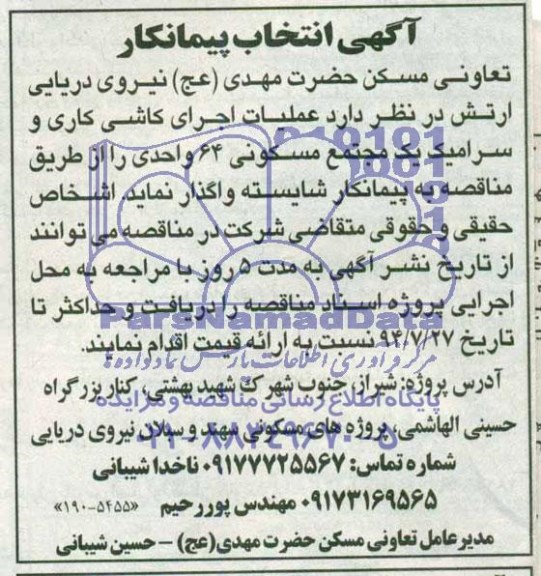 آگهی انتخاب پیمانکار
تعاونی مسکن حضرت مهدی (عج) نیروی دریایی
ارتش در نظر دارد عملیات اجرای کاشی کاری و
سرامیک یک مجتمع مسکونی ۶۴ واحدی را از طریق
مناقصه به پیمانکار شایسته واگذار نماید. اشخاص
حقیقی و حقوقی متقاضی شرکت در مناقصه می توانند
از تاریخ نشر آگهی به مدت ۵ روز با مراجعه به محل
اجرایی پروژه اسناد مناقصه را دریافت و حداکثر تا
ParsNamadData
تاریخ ۹۴/۷/۲۷ نسبت به ارائه قیمت اقدام نمایند.
مرکز فرآوری اطلاعات پارس نماد داده ها
آدرس پروژه: شیراز، جنوب شهرک شهید بهشتی، کنار بزرگراه
پایگاه اطلاع رسانی مناقصه و مزایده
حسینی الهاشمی، پروژه های مسکونی سهند و سبلان نیروی دریایی
۰۲۱-۸۸۳۴۹۶۷۰-۵
شماره تماس: ۰۹۱۷۷۷۲۵۵۶۷ ناخدا شیبانی
۰۹۱۷۳۱۶۹۵۶۵ مهندس پوررحیم «۱۹۰-۵۴۵۵»
مدیرعامل تعاونی مسکن حضرت مهدی (عج) – حسین شیبانی